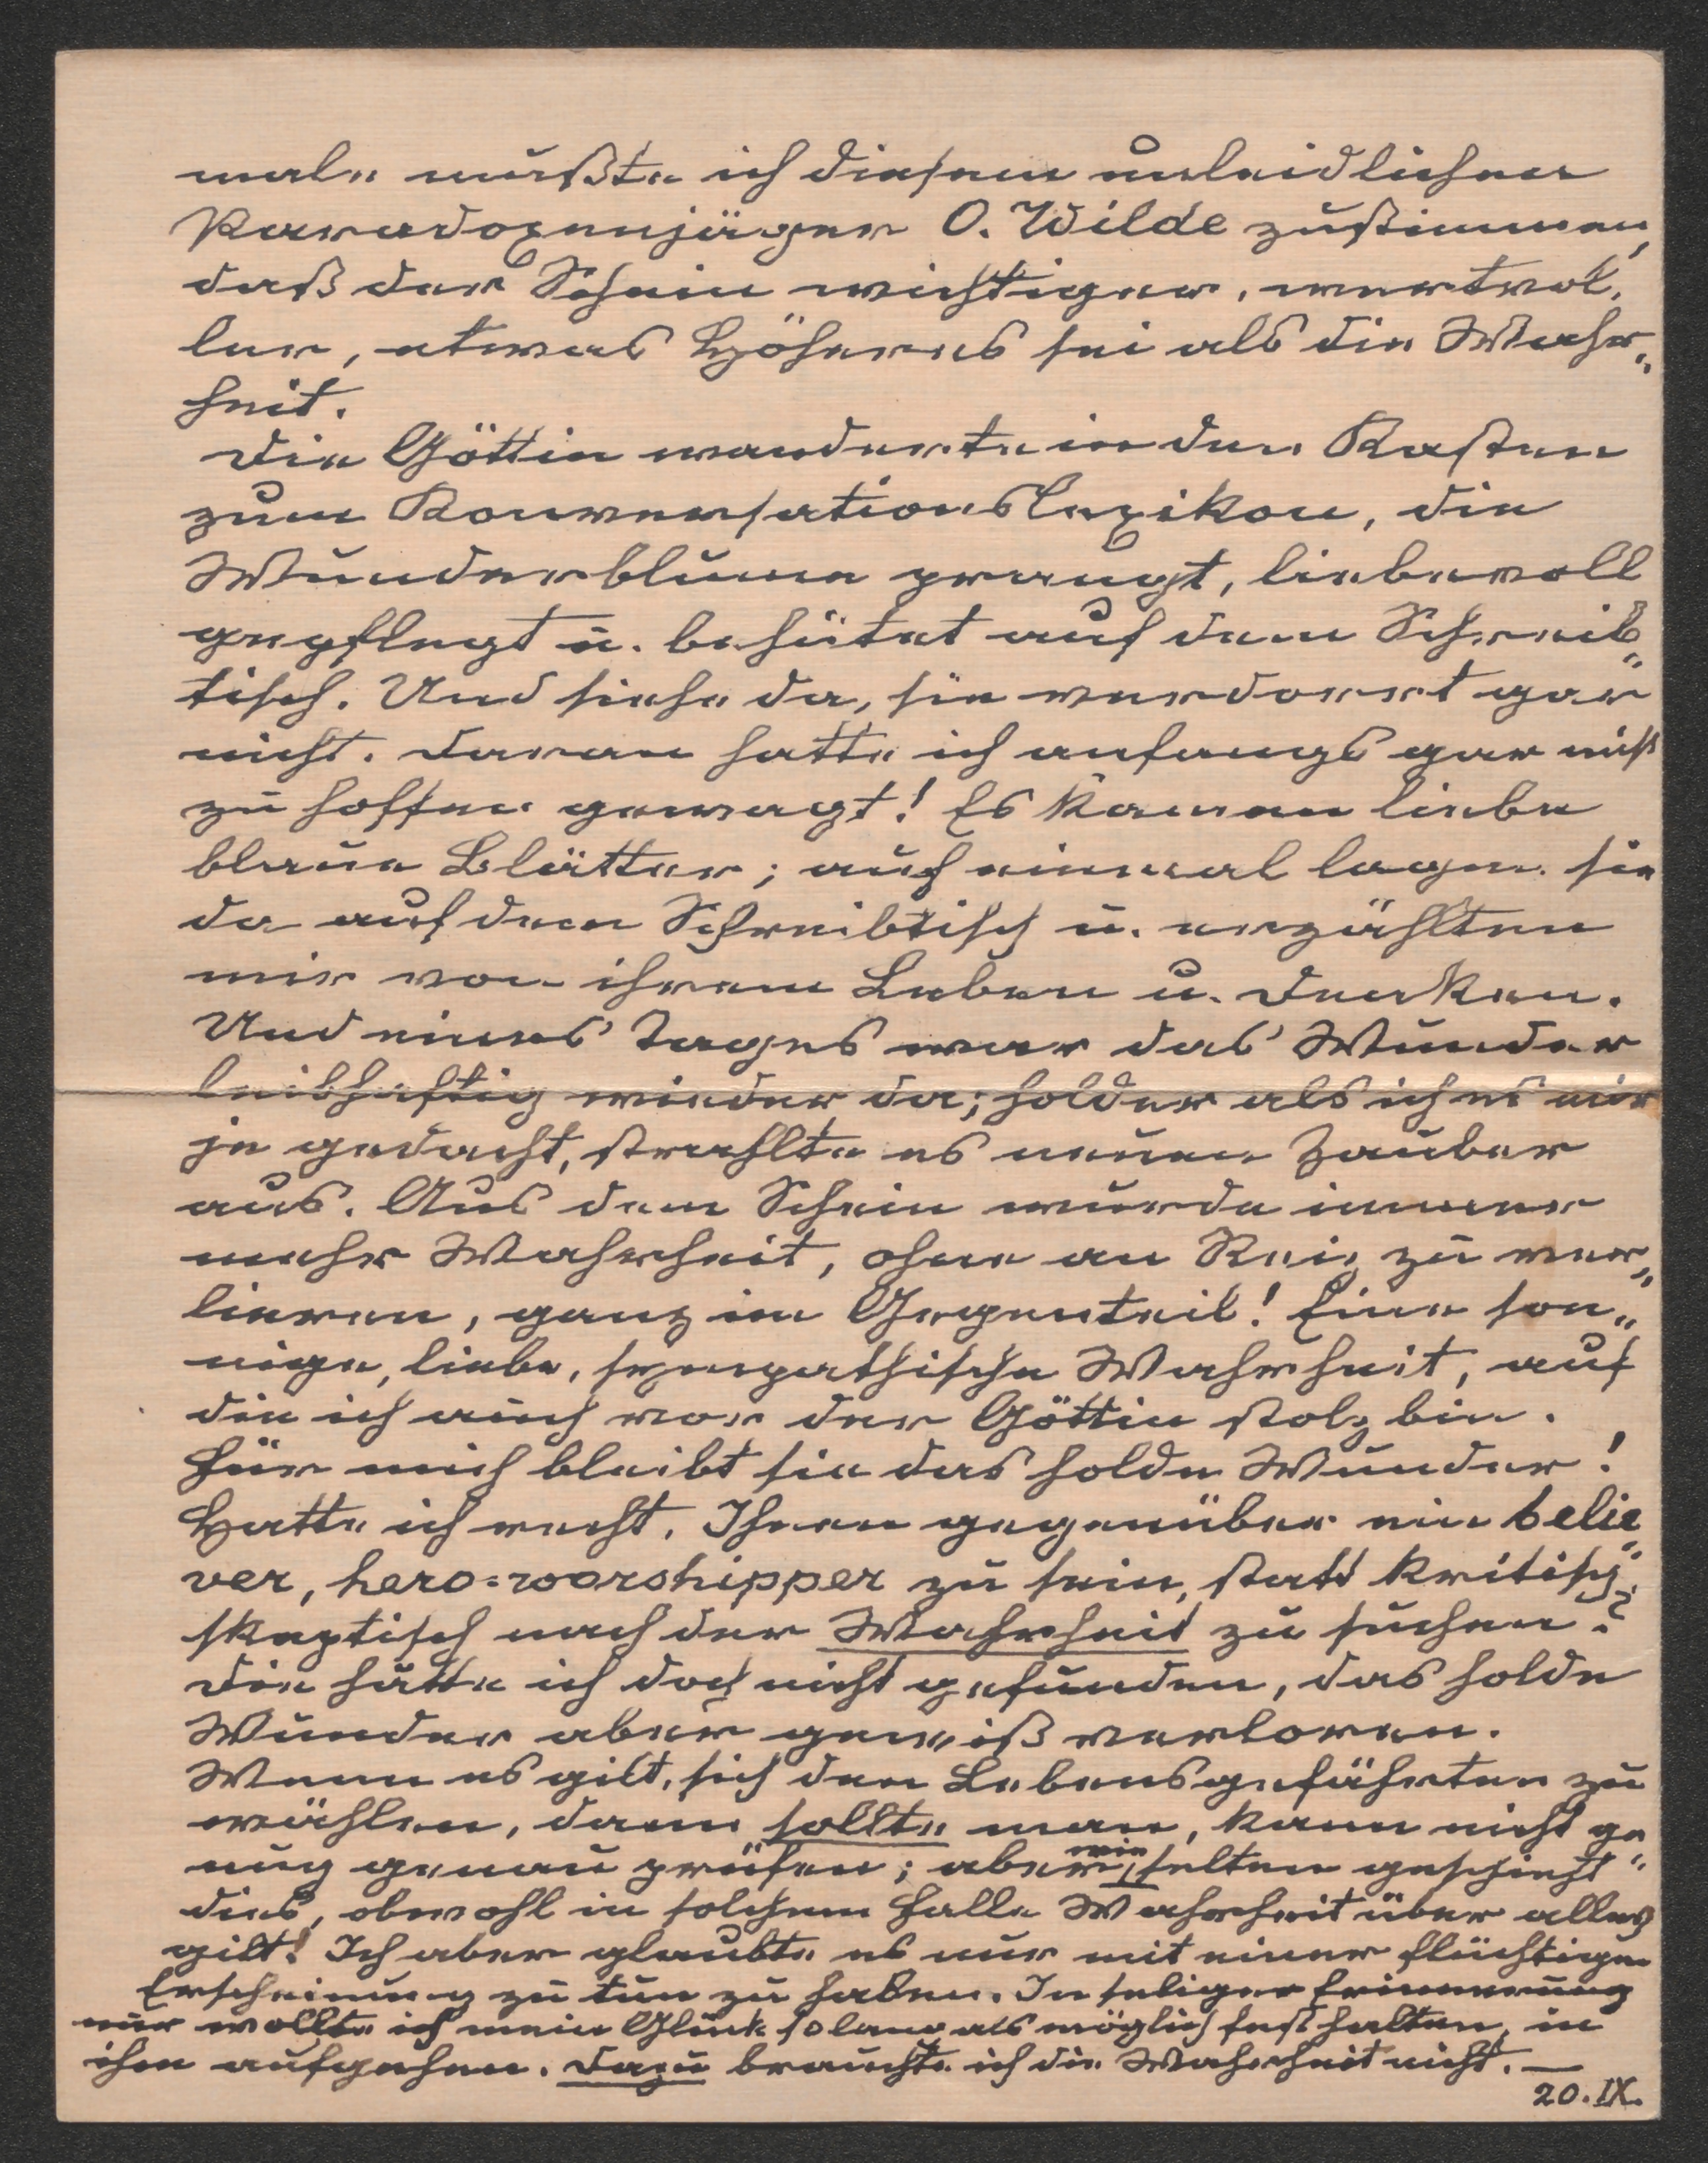 male mußte ich diesem unleidlichen
Paradoxenjäger O. Wilde zustimmen,
daß der Schein wichtiger, wertvol„
ler, etwas Höheres sei als die Wahr„
heit.
Die Göttin wanderte in den Kasten
zum Konversationslexikon, die
Wunderblume prangt, liebevoll
gepflegt u. behütet auf dem Schreib„
tisch. Und siehe da, sie verdorrt gar
nicht. Daran hatte ich anfangs gar nicht
zu hoffen gewagt! Es kamen liebe
blaue Blätter; auf einmal lagen sie
da auf dem Schreibtisch u. erzählten
mir von ihrem Leben u. Denken.
Und eines Tages war das Wunder
leibhaftig wieder da; holder als ich es mir
je gedacht, strahlte es neuen Zauber
aus. Aus dem Schein wurde immer
mehr Wahrheit, ohne an Reiz zu ver„
lieren, ganz im Gegenteil! Eine son„
nige, liebe, sympathische Wahrheit, auf
die ich auch vor der Göttin stolz bin.
Für mich bleibt sie das holde Wunder!
Hatte ich recht, Ihnen gegenüber ein belie„
ver, hero=worshipper zu sein, statt kritisch
skeptisch nach der Wahrheit zu suchen?
Die hätte ich doch nicht gefunden, das holde
Wunder aber gewiß verloren.
Wenn es gilt, sich den Lebensgefährten zu
wählen, dann sollte man, kann nicht ge„
nug genau prüfen; aber wie selten geschieht
dies, obwohl in solchem Falle Wahrheit über alles
gilt! Ich aber glaubte es nur mit einer flüchtigen
Erscheinung zu tun zu haben. In seliger Erinnerung
nur wollte ich mein Glück so lang als möglich fest halten, in
ihm aufgehen. Dazu brauchte ich die Wahrheit nicht. —
20. IX.